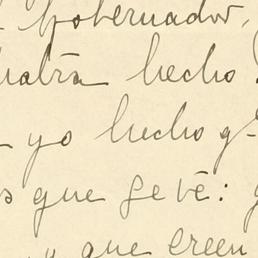 Gobernador,
habrá hecho
yo hecho q-
s que se vé:
y que creen